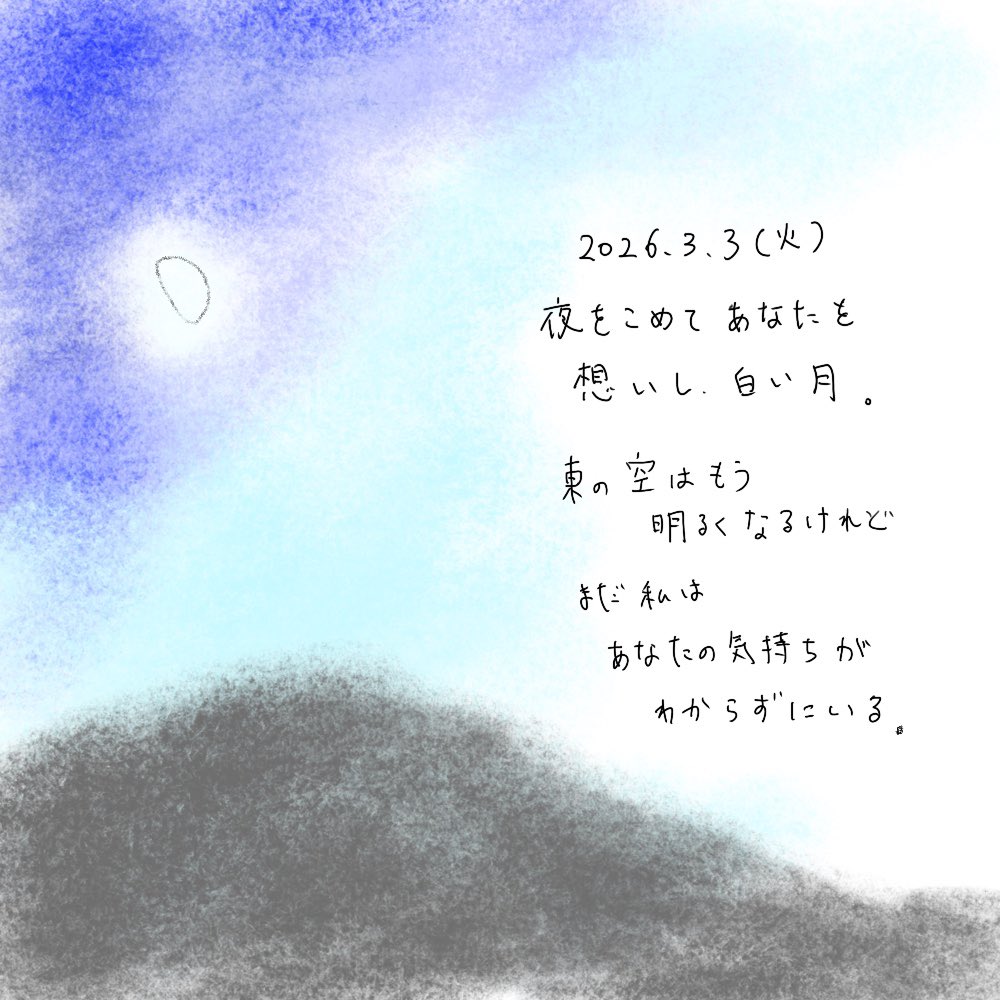 2026.3.3(火)
夜をこめて あなたを
想いし、白い月。
東の空はもう
明るくなるけれど
まだ私は
あなたの気持ちが
わからずにいる。